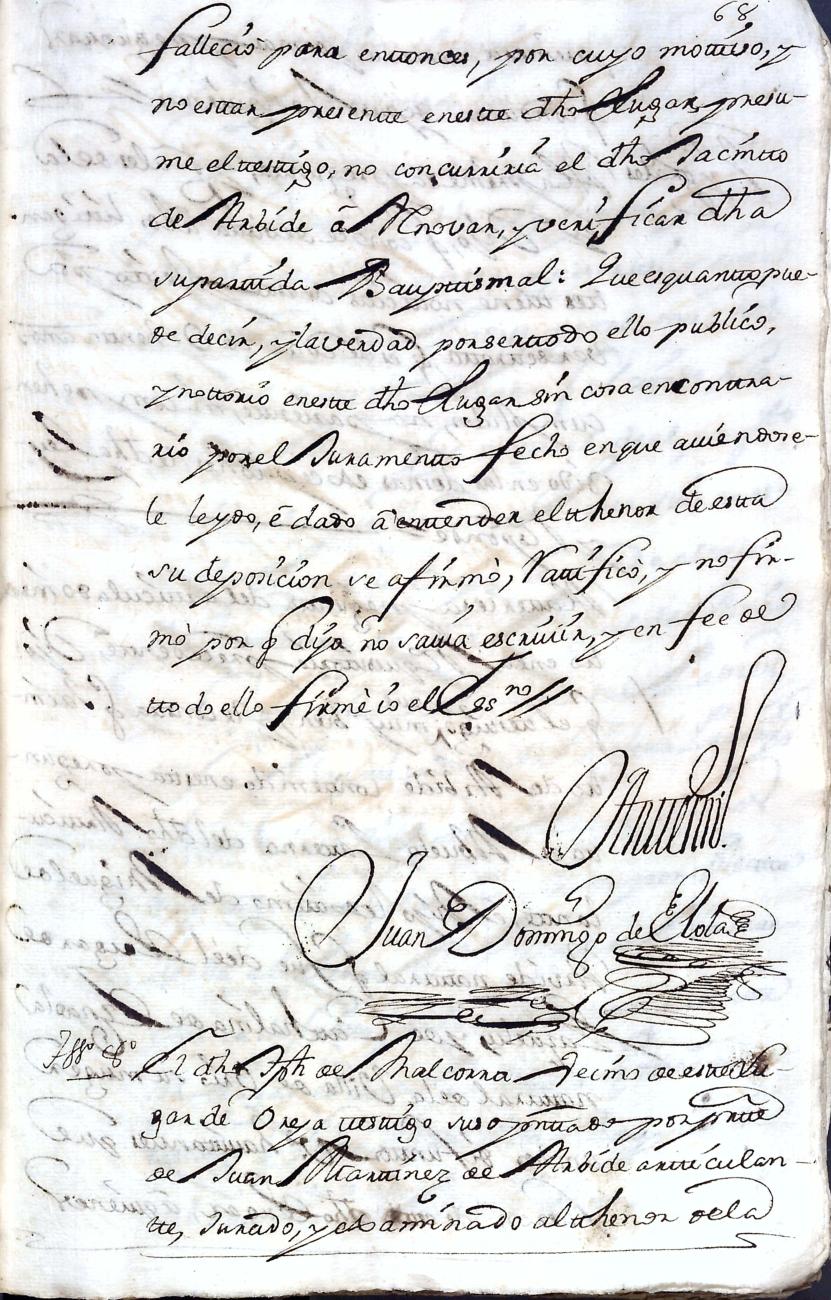 68
fallecio para enttonces, por cuyo mottivo, y
no esttar presentte en estte dho Lugar, presu-
me el testtigo, no concurriria el dho Jacintto
de Arbide á Rnovar, y verificar dha
su parttida Bapttismal: Que es quantto pue-
de decir, y la verdad por ser ttodo ello publico,
y nottorio en estte dho Lugar sin cosa en conttra-
rio por el Juramentto fecho en que aviendose-
le leydo, é dado á enttender el tthenor de estta
su deposicion se afirmò, Rattificò, y no fir-
mò por q dijo no savia escrivir, y en fee de
ttodo ello firmè io el Essno
Antte mi.
Juan Domingo de Elola
Tsso 8o El dho Jph de Balcorra Vecino de estte Lu-
gar de Oreja ttesttigo suso pnttado por partte
de Juan Marttinez de Arbide artticulan-
tte, Jurado, y examinado al tthenor de la